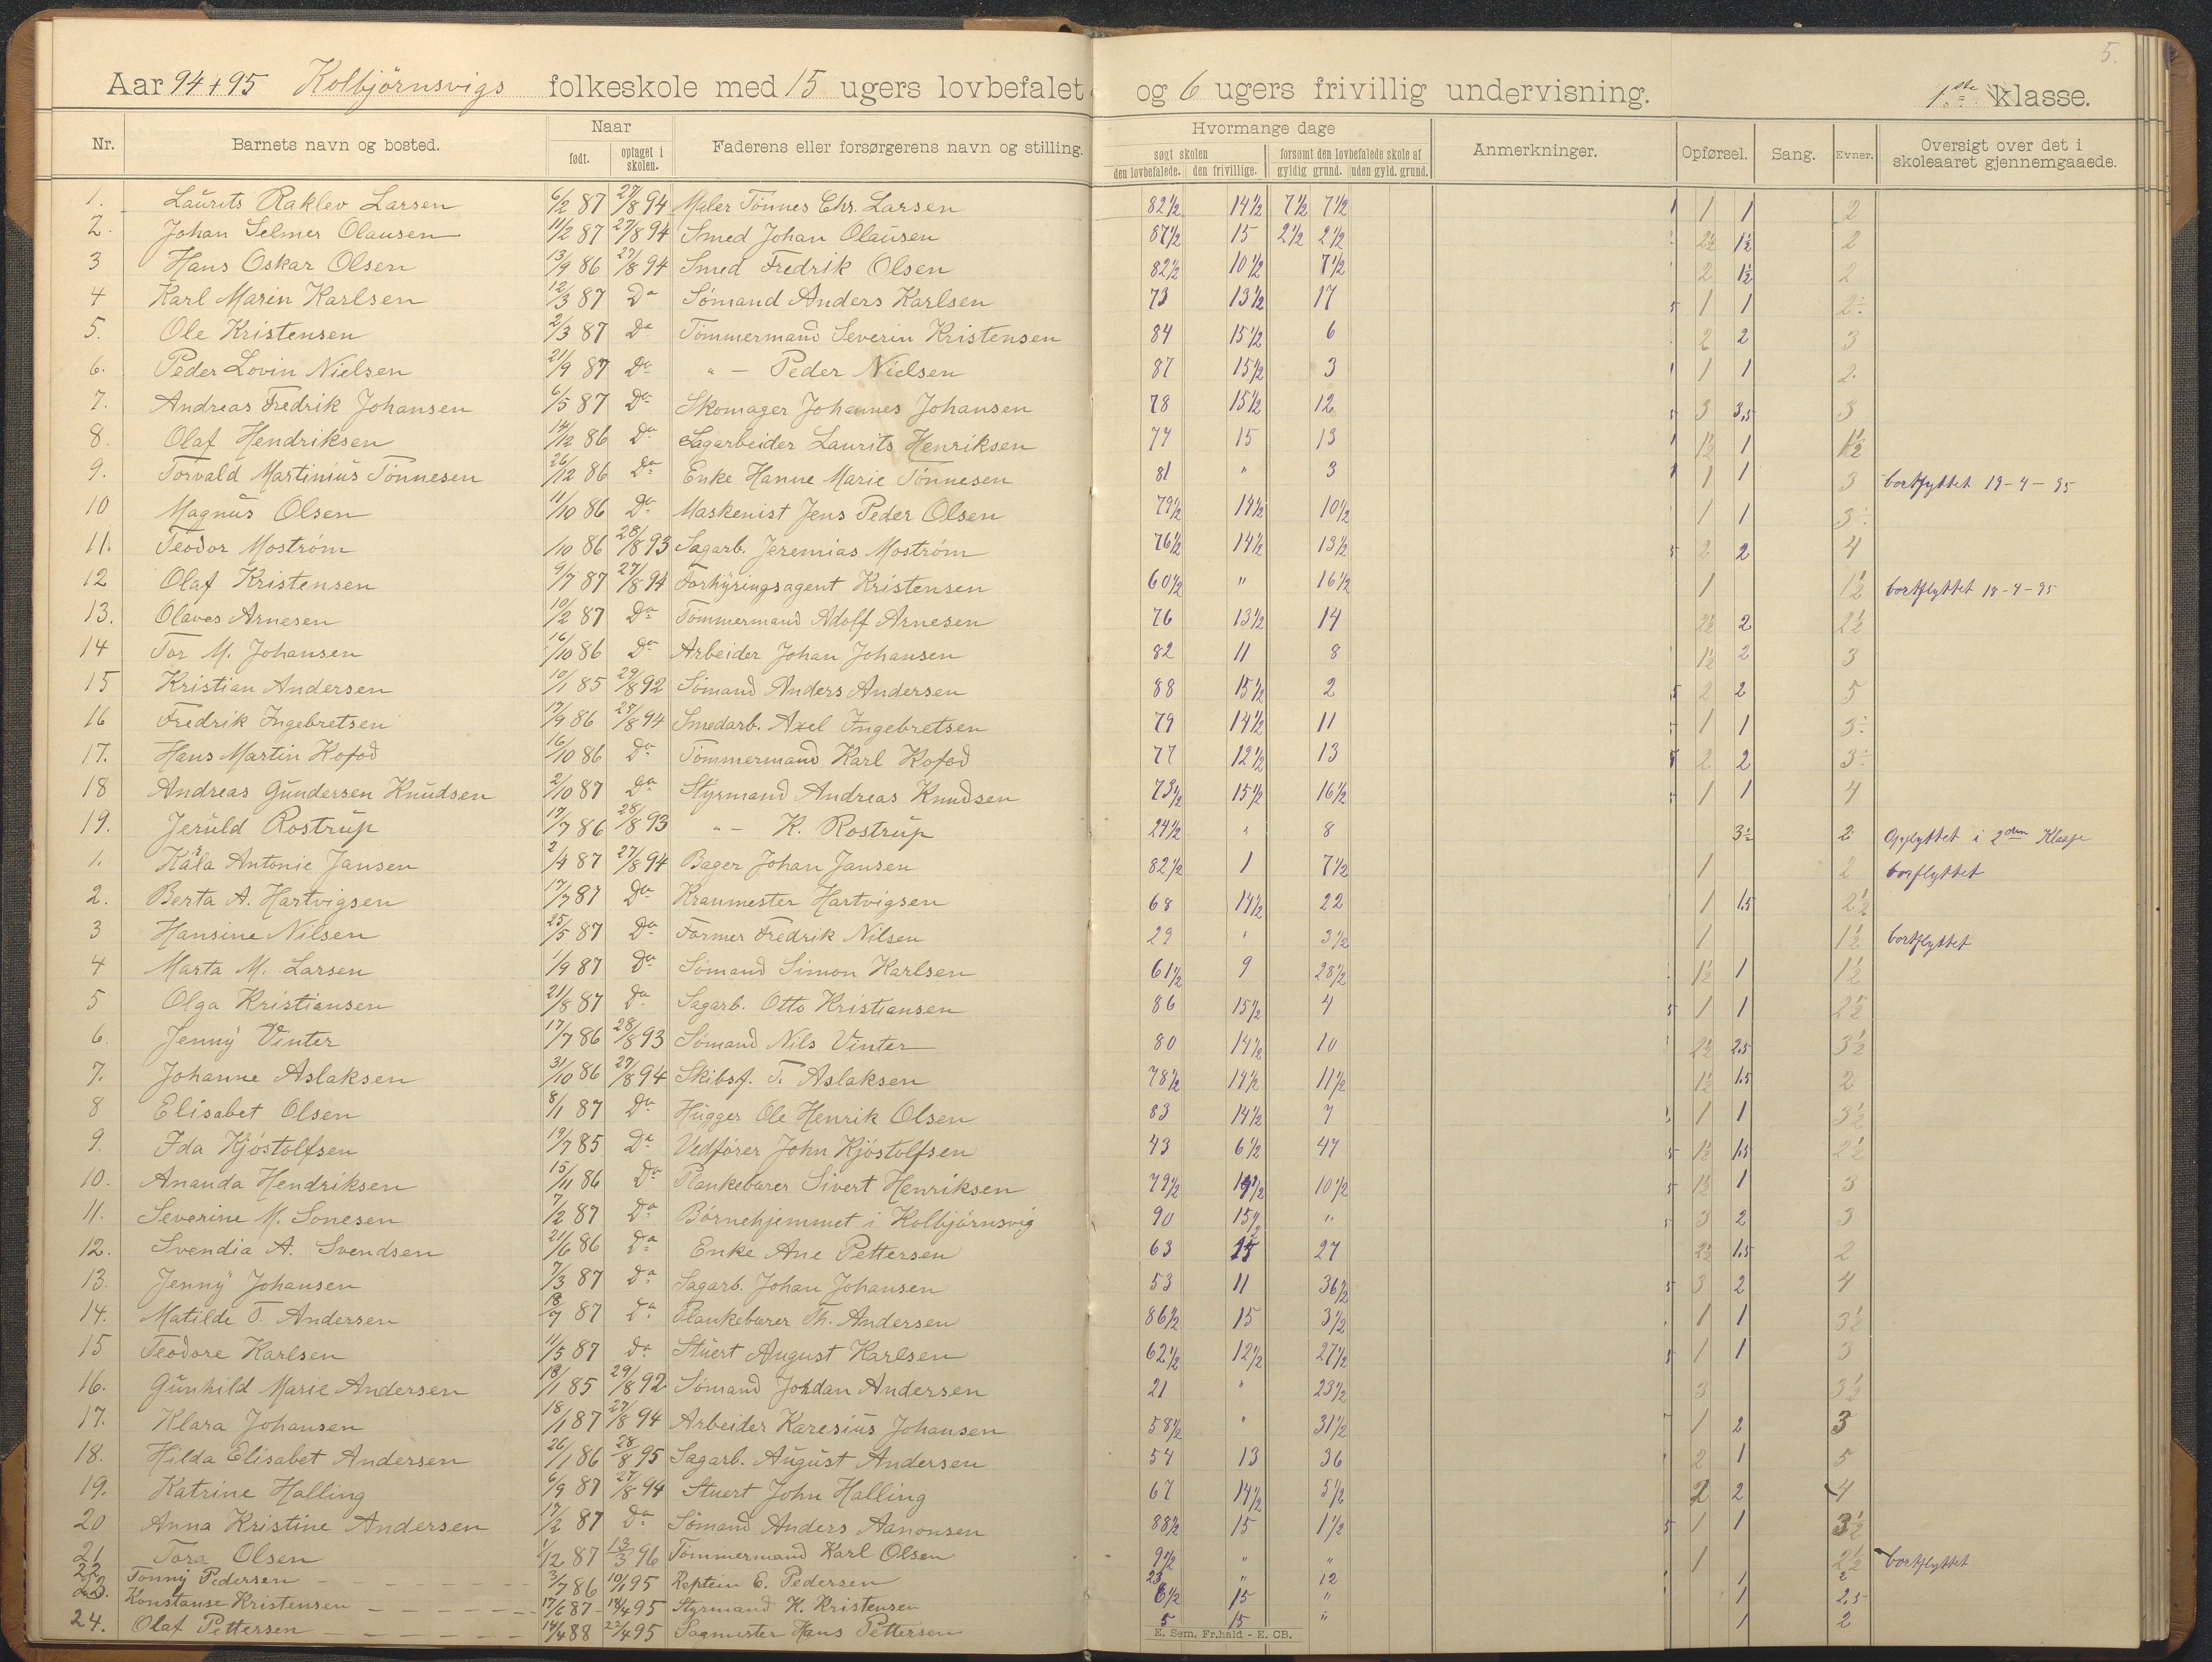 5.
Aar 94+95 Kolbjörnsvigs folkeskole med 15 ugers lovbefalet og 6 ugers frivillig undervisning. 1ste klasse.
Nr. Barnets navn og bosted. Naar født. optaget i skolen. Faderens eller forsørgerens navn og stilling. Hvormange dage søgt skolen den lovbefalede. den frivillige. forsømt den lovbefalede skole af gyldig grund. uden gyld. grund. Anmerkninger. Opførsel. Sang. Evner. Oversigt over det i skoleaaret gjennemgaaede.
1. Laurits Raklev Larsen 6/2 87 27/8 94 Maler Tönnes Chr. Larsen 82½ 14½ 7½ 7½ 1 1 2
2. Johan Selmer Olausen 11/2 87 27/8 94 Smed Johan Olausen 87½ 15 2½ 2½ 2½ 1½ 2
3 Hans Oskar Olsen 13/9 86 27/8 94 Smed Fredrik Olsen 82½ 10½ 7½ 2 1½ 2
4 Karl Marin Karlsen 12/3 87 Do Sömand Anders Karlsen 73 13½ 17 1 1 2÷
5. Ole Kristensen 2/3 87 Do Tömmermand Severin Kristensen 84 15½ 6 2 2 3
6. Peder Lovin Nielsen 21/9 87 Do " – Peder Nielsen 87 15½ 3 1 1 2.
7. Andreas Fredrik Johansen 6/5 87 Do Skomager Johannes Johansen 78 15½ 12 3 3,5 3
8. Olaf Hendriksen 14/12 86 Do Sagarbeider Laurits Henriksen 77 15 13 1½ 1 1½
9. Torvald Martinius Tönnesen 26/12 86 Do Enke Hanne Marie Tönnesen 81 " 3 1 1 3 bortflyttet 19-4-95
10 Magnus Olsen 11/10 86 Do Maskenist Jens Peder Olsen 79½ 14½ 10½ 1 1 3÷
11. Teodor Moström /10 86 28/8 93 Sagarb. Jeremias Moström 76½ 14½ 13½ 2 2 4
12 Olaf Kristensen 9/7 87 27/8 94 Forhyringsagent Kristensen 60½ " 16½ 1 1½ bortflyttet 18-4-95
13. Olaves Arnesen 10/2 87 Do Tömmermand Adolf Arnesen 76 13½ 14 2½ 2 2½
14 Tor M. Johansen 16/10 86 Do Arbeider Johan Johansen 82 11 8 1½ 2 3
15 Kristian Andersen 10/1 85 29/8 92 Sömand Anders Andersen 88 15½ 2 2 2 5
16 Fredrik Ingebretsen 17/9 86 27/8 94 Smedarb. Axel Ingebretsen 79 14½ 11 1 1 3÷
17. Hans Martin Kofod 16/10 86 Do Tömmermand Karl Kofod 77 12½ 13 2 2 3÷
18 Andreas Gundersen Knudsen 2/10 87 Do Styrmand Andreas Knudsen 73½ 15½ 16½ 1 1 4
19. Jeruld Rostrup 17/7 86 28/8 93 " – K. Rostrup 24½ " 8 3½ 2 Opflyttet i 2den Klasse
1. Kala Antonie Jansen 2/4 87 27/8 94 Bager Johan Jansen 82½ 1 7½ 1 2 borflyttet
2. Berta A. Hartvigsen 17/7 87 Do Kranmester Hartvigsen 68 14½ 22 1 1.5 2½
3 Hansine Nilsen 25/5 87 Do Former Fredrik Nilsen 29 " 3½ 1 1½ bortflyttet
4 Marta M. Larsen 1/9 87 Do Sömand Simon Karlsen 61½ 9 28½ 1½ 1 1½
5 Olga Kristiansen 21/8 87 Do Sagarb. Otto Kristiansen 86 15½ 4 1 1 2½
6. Jenny Vinter 17/7 86 28/8 93 Sömand Nils Vinter 80 14½ 10 2½ 2.5 3½
7. Johanne Aslaksen 31/10 86 27/8 94 Skibsf. T. Aslaksen 78½ 14½ 11½ 1½ 1.5 2
8 Elisabet Olsen 8/1 87 Do Hugger Ole Henrik Olsen 83 14½ 7 1 1 3½
9. Ida Kjöstolfsen 19/7 85 Do Vedförer John Kjöstolfsen 43 6½ 47 1½ 1.5 2½
10. Ananda Hendriksen 15/11 86 Do Plankebærer Sivert Henriksen 79½ 10½ 1½ 1 3
11. Severine M. Sonesen 7/2 87 Do Börnehjemmet i Kolbjörnsvig 90 15½ " 3 2 3
12. Svendia A. Svendsen 21/6 86 Do Enke Ane Pettersen 63 15 27 2½ 1.5 2
13. Jenny Johansen 7/3 87 Do Sagarb. Johan Johansen 53 11 36½ 3 2 4
14. Matilde T. Andersen 18/7 87 Do Plankebærer Th. Andersen 86½ 15 3½ 1 1 3½
15 Teodore Karlsen 11/5 87 Do Stuert August Karlsen 62½ 12½ 27½ 1 1 3
16. Gunhild Marie Andersen 18/1 85 29/8 92 Sömand Jordan Andersen 21 " 23½ 3 3½
17. Klara Johansen 18/1 87 27/8 94 Arbeider Karesius Johansen 58½ " 31½ 1 2 3
18. Hilda Elisabet Andersen 26/1 86 28/8 95 Sagarb. August Andersen 54 13 36 2 1 5
19. Katrine Halling 6/9 87 27/8 94 Stuert John Halling 67 14½ 5½ 2 2 4
20 Anna Kristine Andersen 17/2 87 Do Sömand Anders Aanonsen 88½ 15 1½ 1 1 3½
21 Tora Olsen 1/12 87 13/3 96 Tömmermand Karl Olsen 9½ " " 1 2½ bortflyttet
22 Tonny Pedersen 3/7 86 10/1 95 Kaptein E. Pedersen 23 " 12 1 2
23. Konstanse Kristensen 17/6 87 18/4 95 Styrmand K. Kristensen 6½ 15 " 1 2.5
24. Olaf Pettersen 14/4 88 22/4 95 Sagmester Hans Pettersen 5 15 " 1 2
E. Sem. Fr.hald - E. CB.